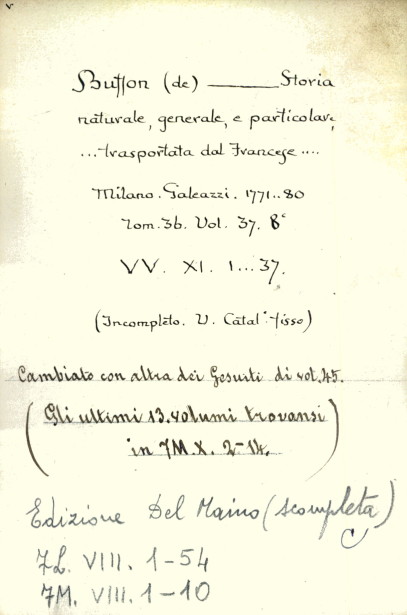 Buffon (de) ——— Storia
naturale, generale, e particolare,
...trasportata dal Francese....
Milano. Galeazzi. 1771..80
Tom. 36. Vol. 37. 8°
VV. XI. 1...37.
(Incompleto. V. Catal° fisso)
Cambiato con altra dei Gesuiti di vol. 45.
(Gli ultimi 13. volumi trovansi
in 7M. X. 2-14.)
Edizione Del Maino (scompleta)
7L. VIII. 1-54
7M. VIII. 1-10